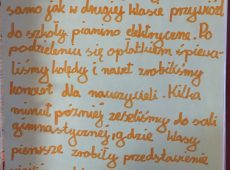 samo jak w drugiej klasie przywiózł
do szkoły pianino elektryczne. Po
podzieleniu się opłatkiem śpiewa-
liśmy kolędy i nawet zrobiliśmy
koncert dla nauczycieli. Kilka
minut później zeszliśmy do sali
gimnastycznej, gdzie klasy
pierwsze zrobiły przedstawienie